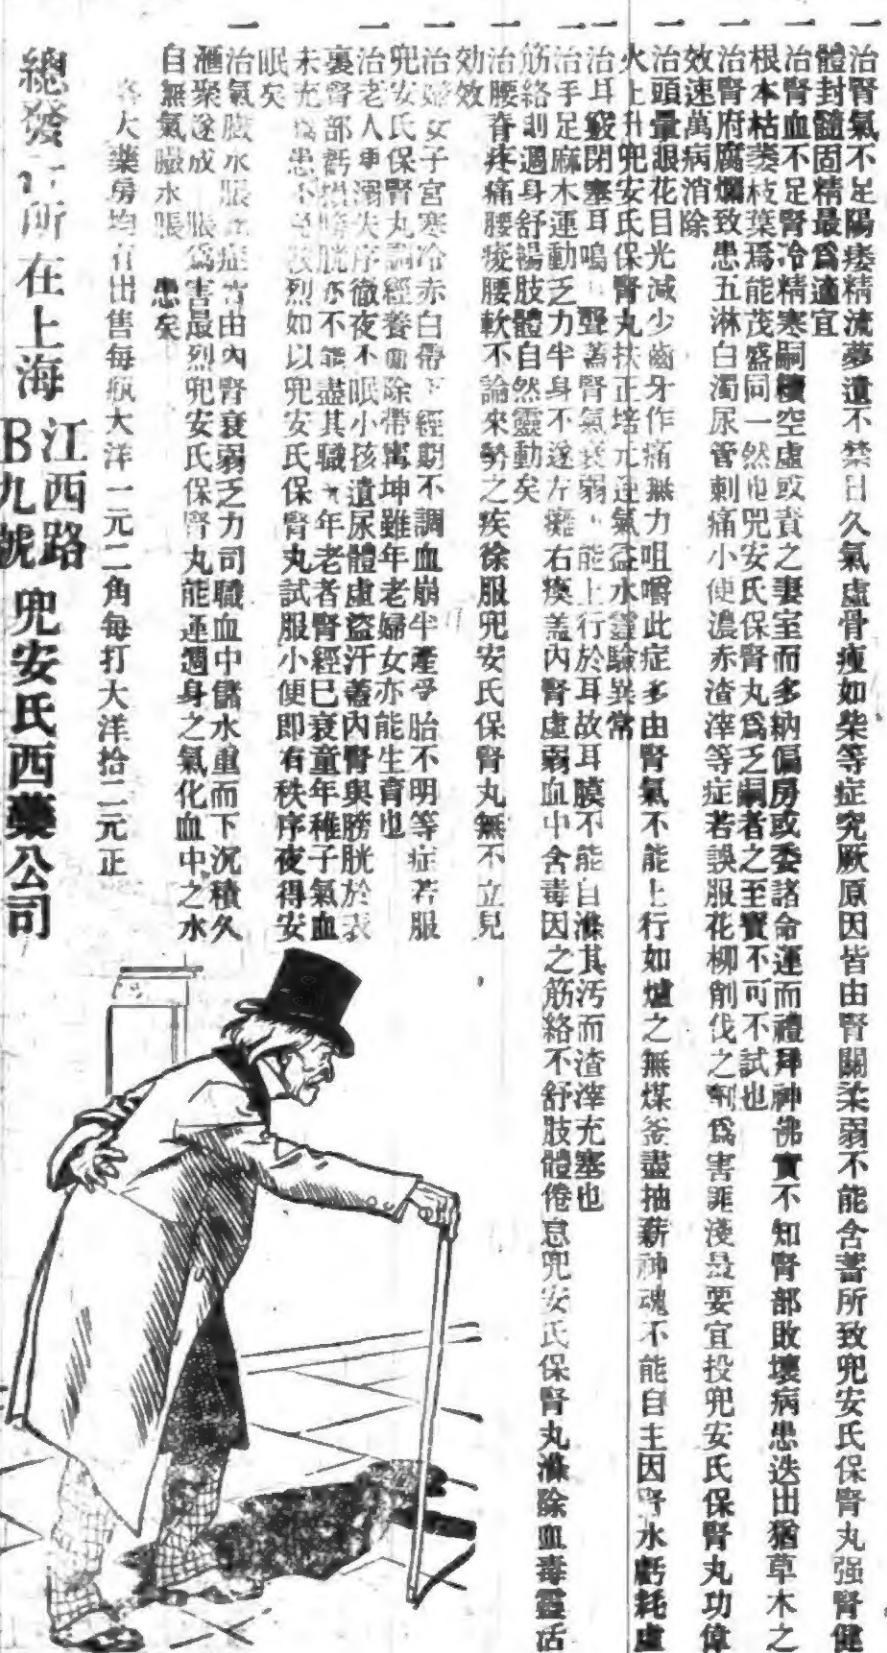 一治腎氣不足陽痿精流夢遺不禁日久氣虛骨瘦如柴等症究厥原因皆由腎關柔弱不能含蓄所致兜安氏保腎丸强腎健
體封髓固精最爲適宜
一治腎血不足腎冷精寒嗣續空虛或責之妻室而多納偏房或委諸命運而禮拜神佛實不知腎部敗壞病患迭出猶草木之
根本枯萎枝葉焉能茂盛同一然也兜安氏保腎丸爲乏嗣者之至寶不可不試也
一治腎府腐爛致患五淋白濁尿管刺痛小便濃赤渣滓等症若誤服花柳削伐之劑爲害匪淺最要宜投兜安氏保腎丸功偉
效速萬病消除
一治頭暈眼花目光減少齒牙作痛無力咀嚼此症多由腎氣不能上行如爐之無煤釜盡抽薪神魂不能自主因腎水虧耗虛
火上升兜安氏保腎丸扶正培元運氣益水靈驗異常
一治耳竅閉塞耳鳴 聾蓋腎氣衰弱 能上行於耳故耳膜不能自滌其污而渣滓充塞也
一治手足麻木運動乏力半身不遂左癱右瘓蓋內腎虛弱血中含毒因之筋絡不舒肢體倦怠兜安氏保腎丸滌除血毒靈活
筋絡則週身舒暢肢體自然靈動矣
一治腰脊疼痛腰痠腰軟不論來勢之疾徐服兜安氏保腎丸無不立見
効效
一治婦女子宮寒冷赤白帶下經期不調血崩半產孕胎不明等症若服
兜安氏保腎丸調經養血除帶 坤雖年老婦女亦能生育也
一治老人 溺失序徹夜不眠小孩遺尿體虛盜汗蓋內腎與膀胱於表
裏腎部虧損膀胱亦不能盡其職 年老者腎經已衰童年稚子氣血
未充 爲患不 烈如以兜安氏保腎丸試服小便即有秩序夜得安
眠矣
一治氣臌水脹 症 由內腎衰弱乏力司職血中儲水重而下沉積久
滙聚遂成 脹爲害最烈兜安氏保腎丸能運週身之氣化血中之水
自無氣臌水脹 患矣
各大藥房均有出售每瓶大洋一元二角每打大洋拾二元正
總發行所在上海江西路B九號兜安氏西藥公司